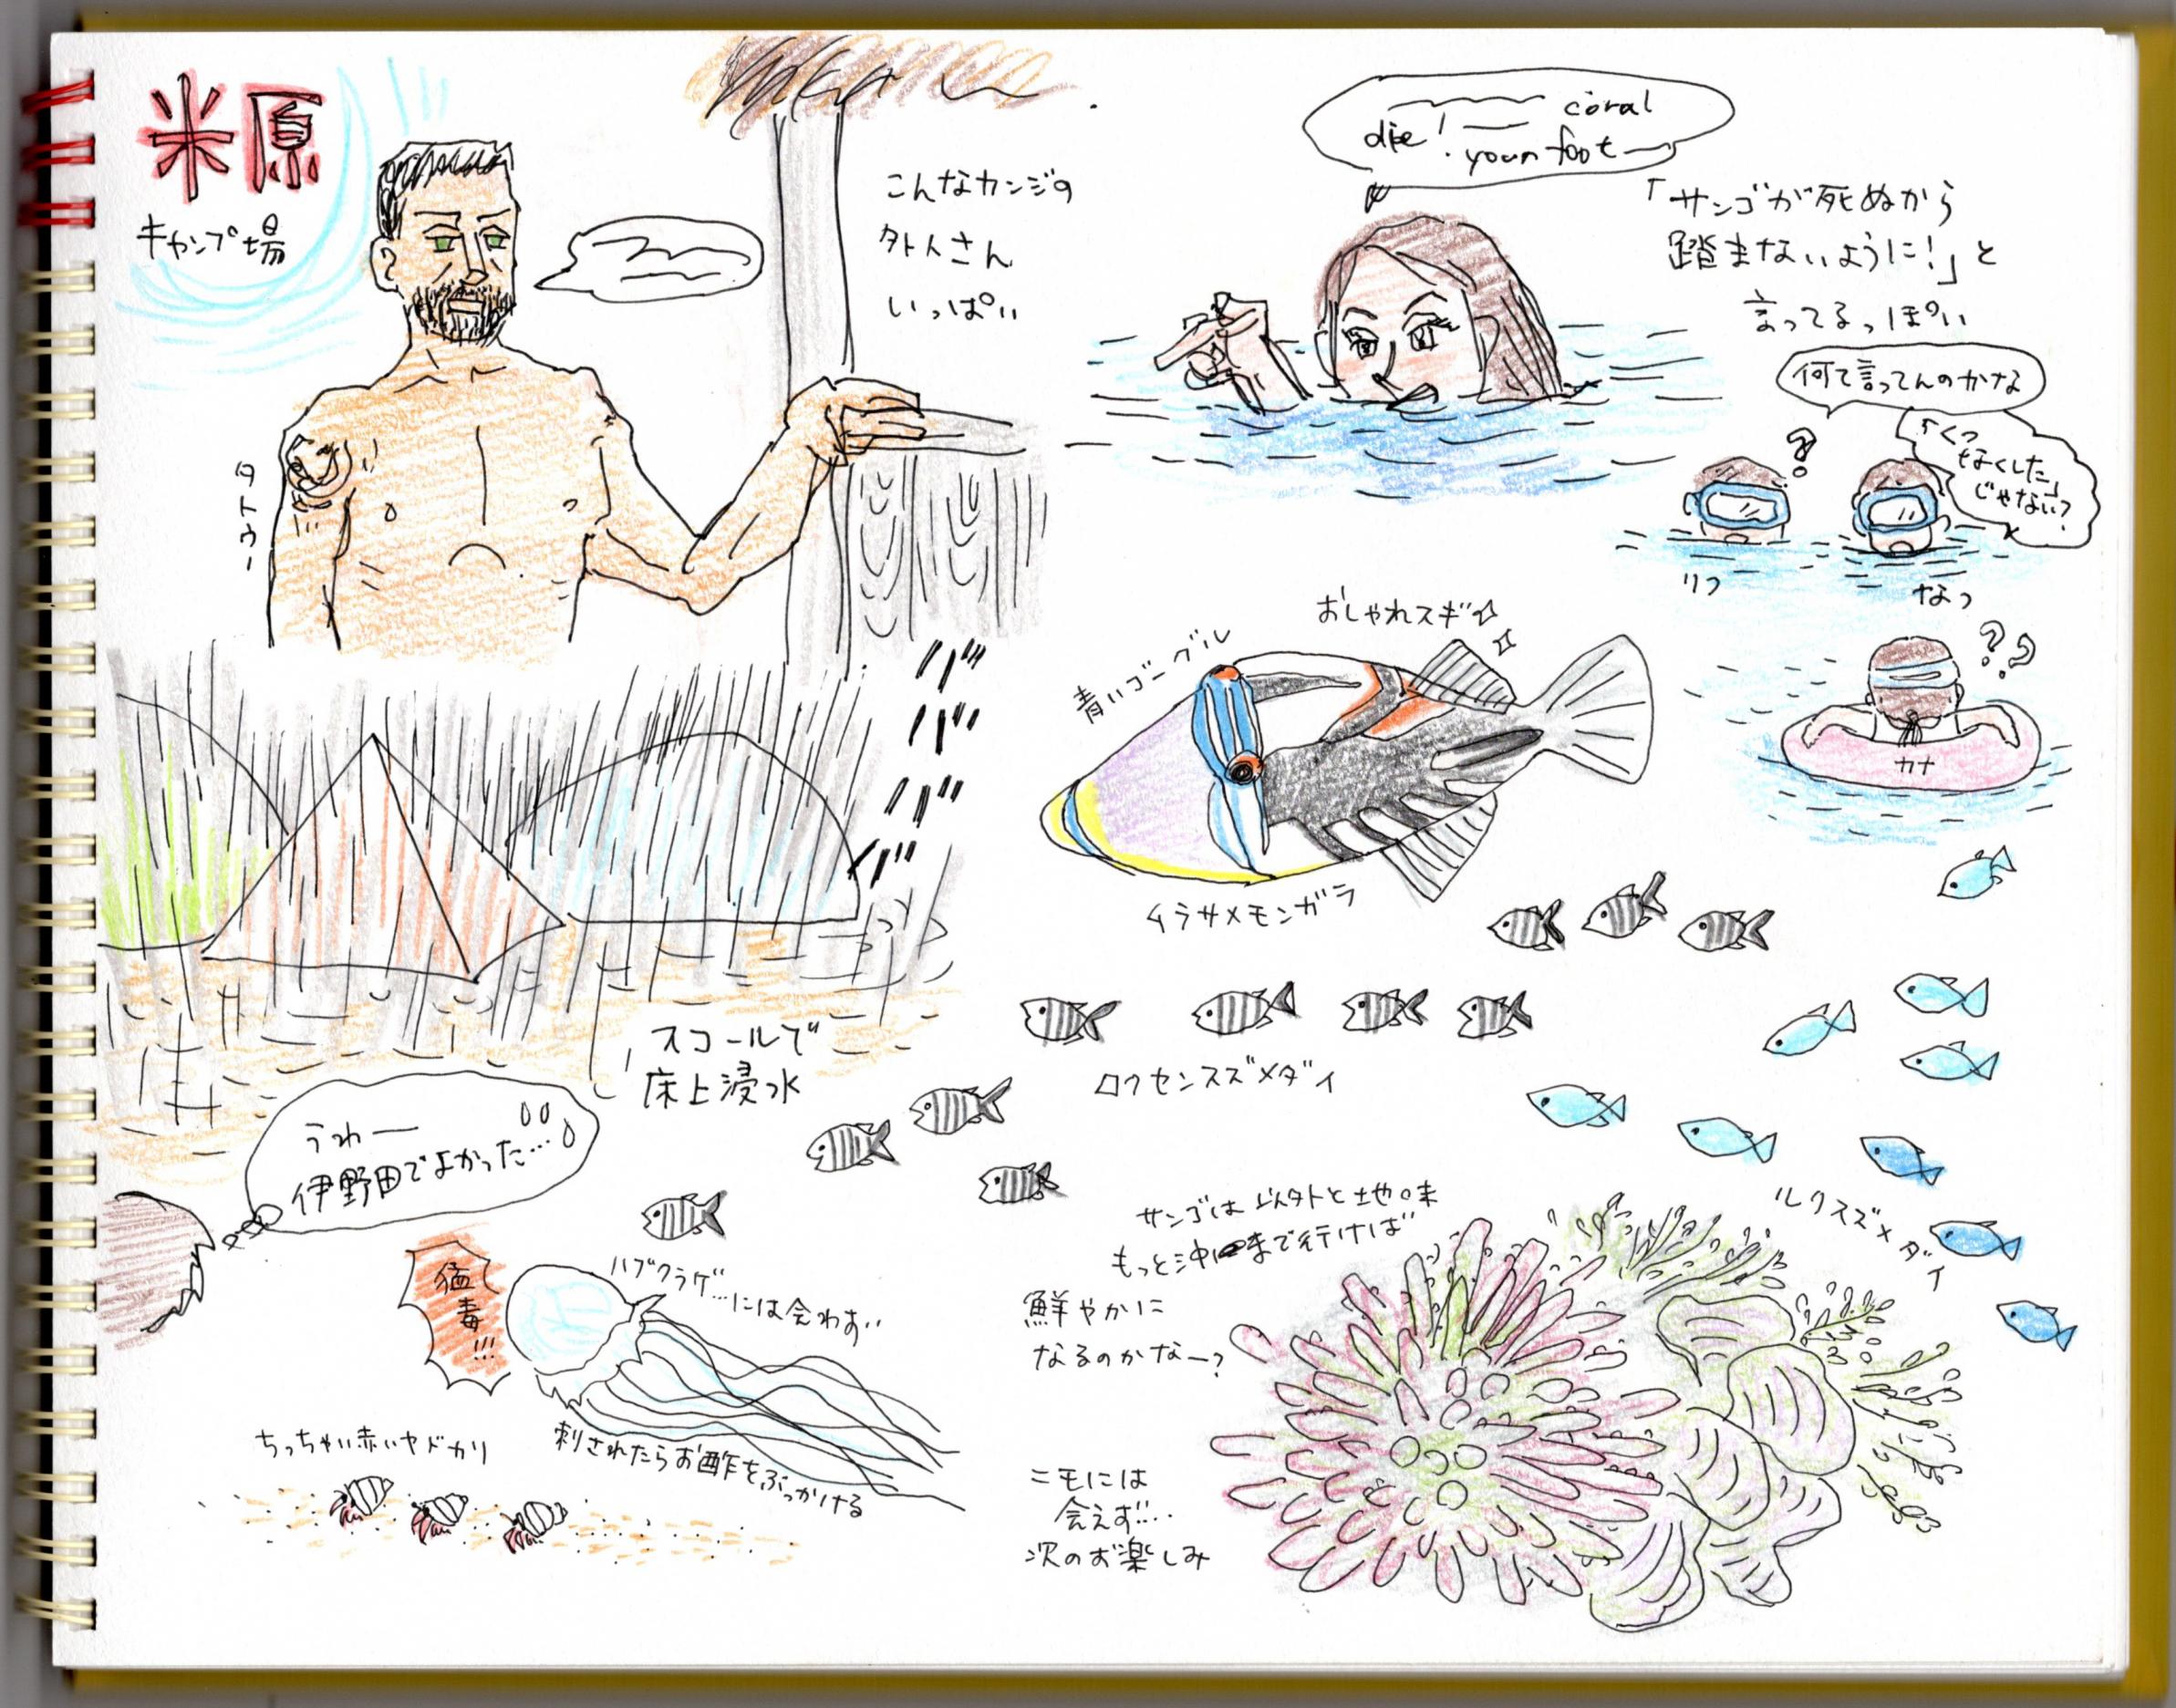 米原
キャンプ場
こんなカンジの
外人さん
いっぱい
タトゥー
coral
die!
your foot
「サンゴが死ぬから
踏まないように!」と
言ってるっぽい
何て言ってんのかな
?
「くつ
なくした」
じゃない?
リつ
なつ
??
カナ
おしゃれスギ
青いゴーグル
ババババ
イラサメモンガラ
スコールで
床上浸水
ロクセンスズメダイ
うわー
伊野田でよかった…
ルリスズメダイ
サンゴは以外と地味
もっと沖まで行けば
鮮やかに
なるのかなー?
猛毒!!!
ハブクラゲ…には会わず…
刺されたらお酢をぶっかける
ちっちゃい赤いヤドカリ
ニモには
会えず…
次のお楽しみ